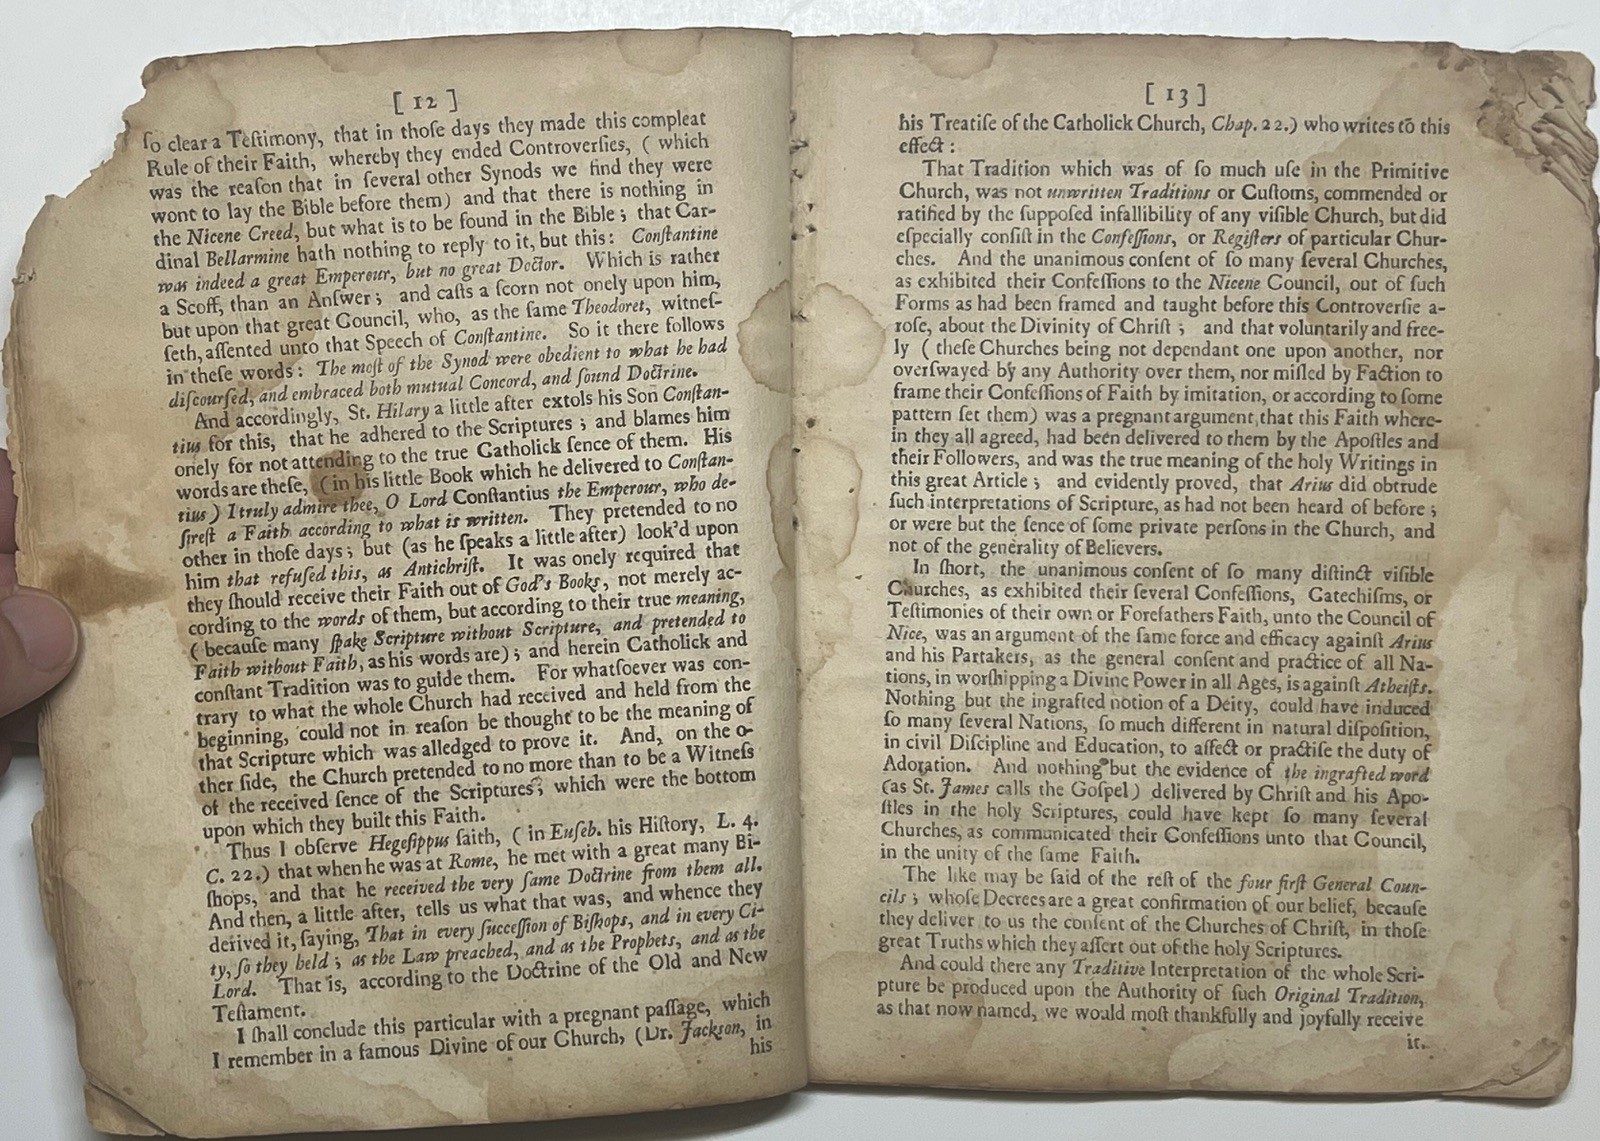 [ 12 ]
ſo clear a Teſtimony, that in thoſe days they made this compleat
Rule of their Faith, whereby they ended Controverſies, ( which
was the reaſon that in ſeveral other Synods we find they were
wont to lay the Bible before them) and that there is nothing in
the Nicene Creed, but what is to be found in the Bible ; that Car-
dinal Bellarmine hath nothing to reply to it, but this : Conſtantine
was indeed a great Emperour, but no great Doctor. Which is rather
a Scoff, than an Anſwer ; and caſts a ſcorn not onely upon him,
but upon that great Council, who, as the ſame Theodoret, witneſ-
ſeth, aſſented unto that Speech of Conſtantine. So it there follows
in theſe words : The moſt of the Synod were obedient to what he had
diſcourſed, and embraced both mutual Concord, and ſound Doctrine.
And accordingly, St. Hilary a little after extols his Son Conſtan-
tius for this, that he adhered to the Scriptures ; and blames him
onely for not attending to the true Catholick ſence of them. His
words are theſe, (in his little Book which he delivered to Conſtan-
tius ) I truly admire thee, O Lord Conſtantius the Emperour, who de-
ſireſt a Faith according to what is written. They pretended to no
other in thoſe days ; but (as he ſpeaks a little after) look'd upon
him that refuſed this, as Antichriſt. It was onely required that
they ſhould receive their Faith out of God's Books, not merely ac-
cording to the words of them, but according to their true meaning,
( becauſe many ſpake Scripture without Scripture, and pretended to
Faith without Faith, as his words are) ; and herein Catholick and
conſtant Tradition was to guide them. For whatſoever was con-
trary to what the whole Church had received and held from the
beginning, could not in reaſon be thought to be the meaning of
that Scripture which was alledged to prove it. And, on the o-
ther ſide, the Church pretended to no more than to be a Witneſs
of the received ſence of the Scriptures ; which were the bottom
upon which they built this Faith.
Thus I obſerve Hegeſippus ſaith, ( in Euſeb. his Hiſtory, L. 4.
C. 22.) that when he was at Rome, he met with a great many Bi-
ſhops, and that he received the very ſame Doctrine from them all.
And then, a little after, tells us what that was, and whence they
derived it, ſaying, That in every ſucceſſion of Biſhops, and in every Ci-
ty, ſo they held ; as the Law preached, and as the Prophets, and as the
Lord. That is, according to the Doctrine of the Old and New
Teſtament.
I ſhall conclude this particular with a pregnant paſſage, which
I remember in a famous Divine of our Church, (Dr. Jackſon, in
his
[ 13 ]
his Treatiſe of the Catholick Church, Chap. 22.) who writes to this
effect :
That Tradition which was of ſo much uſe in the Primitive
Church, was not unwritten Traditions or Cuſtoms, commended or
ratified by the ſuppoſed infallibility of any viſible Church, but did
eſpecially conſiſt in the Confeſſions, or Regiſters of particular Chur-
ches. And the unanimous conſent of ſo many ſeveral Churches,
as exhibited their Confeſſions to the Nicene Council, out of ſuch
Forms as had been framed and taught before this Controverſie a-
roſe, about the Divinity of Chriſt ; and that voluntarily and free-
ly ( theſe Churches being not dependant one upon another, nor
overſwayed by any Authority over them, nor miſled by Faction to
frame their Confeſſions of Faith by imitation, or according to ſome
pattern ſet them) was a pregnant argument, that this Faith where-
in they all agreed, had been delivered to them by the Apoſtles and
their Followers, and was the true meaning of the holy Writings in
this great Article ; and evidently proved, that Arius did obtrude
ſuch interpretations of Scripture, as had not been heard of before ;
or were but the ſence of ſome private perſons in the Church, and
not of the generality of Believers.
In ſhort, the unanimous conſent of ſo many diſtinct viſible
Churches, as exhibited their ſeveral Confeſſions, Catechiſms, or
Teſtimonies of their own or Forefathers Faith, unto the Council of
Nice, was an argument of the ſame force and efficacy againſt Arius
and his Partakers, as the general conſent and practice of all Na-
tions, in worſhipping a Divine Power in all Ages, is againſt Atheiſts.
Nothing but the ingrafted notion of a Deity, could have induced
ſo many ſeveral Nations, ſo much different in natural diſpoſition,
in civil Diſcipline and Education, to affect or practiſe the duty of
Adoration. And nothing but the evidence of the ingrafted word
(as St. James calls the Goſpel) delivered by Chriſt and his Apo-
ſtles in the holy Scriptures, could have kept ſo many ſeveral
Churches, as communicated their Confeſſions unto that Council,
in the unity of the ſame Faith.
The like may be ſaid of the reſt of the four firſt General Coun-
cils ; whoſe Decrees are a great confirmation of our belief, becauſe
they deliver to us the conſent of the Churches of Chriſt, in thoſe
great Truths which they aſſert out of the holy Scriptures.
And could there any Traditive Interpretation of the whole Scri-
pture be produced upon the Authority of ſuch Original Tradition,
as that now named, we would moſt thankfully and joyfully receive
it.